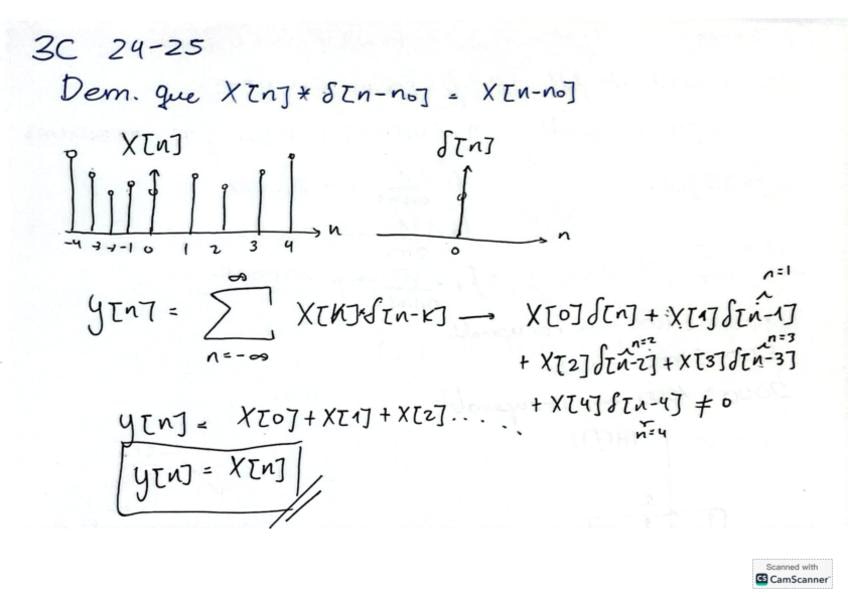 3C 24-25
Dem. que X[n] * δ[n-n0] = X[n-n0]
X[n] δ[n]
n n
-4 -3 -2 -1 0 1 2 3 4 0
n=1
∞
y[n] = ∑ X[K]*δ[n-K] → X[0]δ[n] + X[1]δ[n-1]
n=-∞
n=2 n=3
+ X[2]δ[n-2] + X[3]δ[n-3]
+ X[4]δ[n-4] ≠ 0
n=4
y[n] = X[0] + X[1] + X[2] . . . . . .
y[n] = X[n]
Scanned with
CS CamScanner